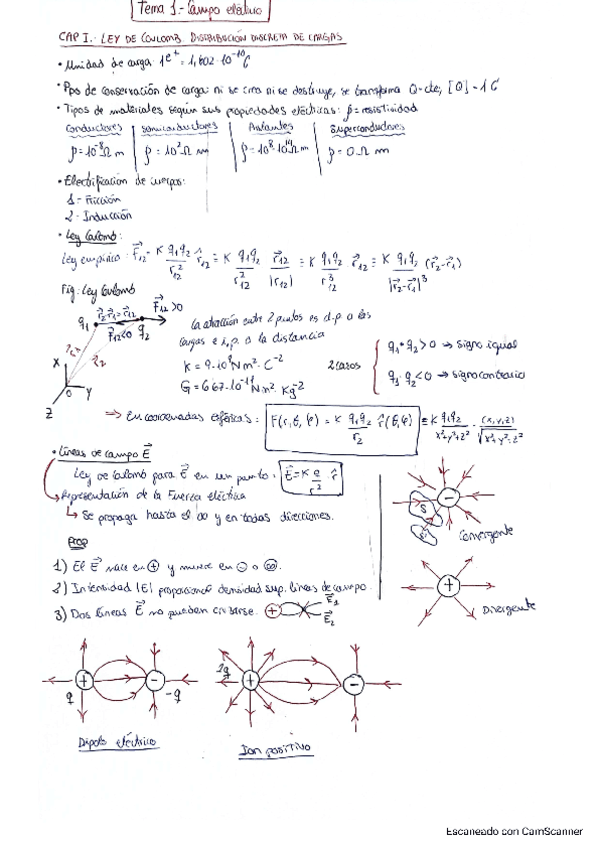 Tema 1.- Campo eléctrico
CAP I.- LEY DE COULOMB. DISTRIBUCIÓN DISCRETA DE CARGAS
• Unidad de carga: 1e⁺ = 1,602·10⁻¹⁹ C
• Ppo de conservación de carga: ni se crea ni se destruye, se transforma Q=cte, [Q] = 1 C
• Tipos de materiales según sus propiedades eléctricas: ρ = resistividad
Conductores | Semiconductores | Aislantes | Superconductores
ρ=10⁻⁸ Ω m | ρ=10² Ω m | ρ=10⁸·10¹⁴ Ω m | ρ=0 Ω m
• Electrificación de cuerpos:
1- Fricción
2- Inducción
• Ley Coulomb:
Ley empírica: F₁₂ = K q₁q₂/r²₁₂ r̂₁₂ ≡ K q₁q₂/r²₁₂ r₁₂/|r₁₂| ≡ K q₁q₂/r³₁₂ r₁₂ ≡ K q₁q₂/|r₂-r₁|³ (r₂-r₁)
Fig: Ley Coulomb
r₂-r₁=r₁₂ F₁₂>0
q₁ F₁₂<0 q₂
r₁ r₂
X O Y
Z
La atracción entre 2 puntos es d.p a las
cargas e i.p. a la distancia
K = 9·10⁹ N m² C⁻²
G = 6'67·10⁻¹¹ N m² Kg⁻²
2 casos
q₁·q₂>0 → signo igual
q₁·q₂<0 → signo contrario
→ En coordenadas esféricas: F(r,θ,φ) = K q₁q₂/r² r̂(θ,φ) ≡ K q₁q₂/x²+y²+z² · (x,y,z)/√x²+y²+z²
• Líneas de campo E
Ley de Coulomb para E en un punto: E = K Q/r² r̂
→ Representación de la Fuerza eléctrica
↳ Se propaga hasta el ∞ y en todas direcciones.
Prop
1) El E nace en ⊕ y muere en ⊖ o ∞.
2) Intensidad |E| proporcional densidad sup. líneas de campo.
3) Dos líneas E no pueden cruzarse. ⊕ E₁ E₂
S
−
Convergente
+
Divergente
+ −
q -q
Dipolo eléctrico
2q + −
Ion positivo
Escaneado con CamScanner